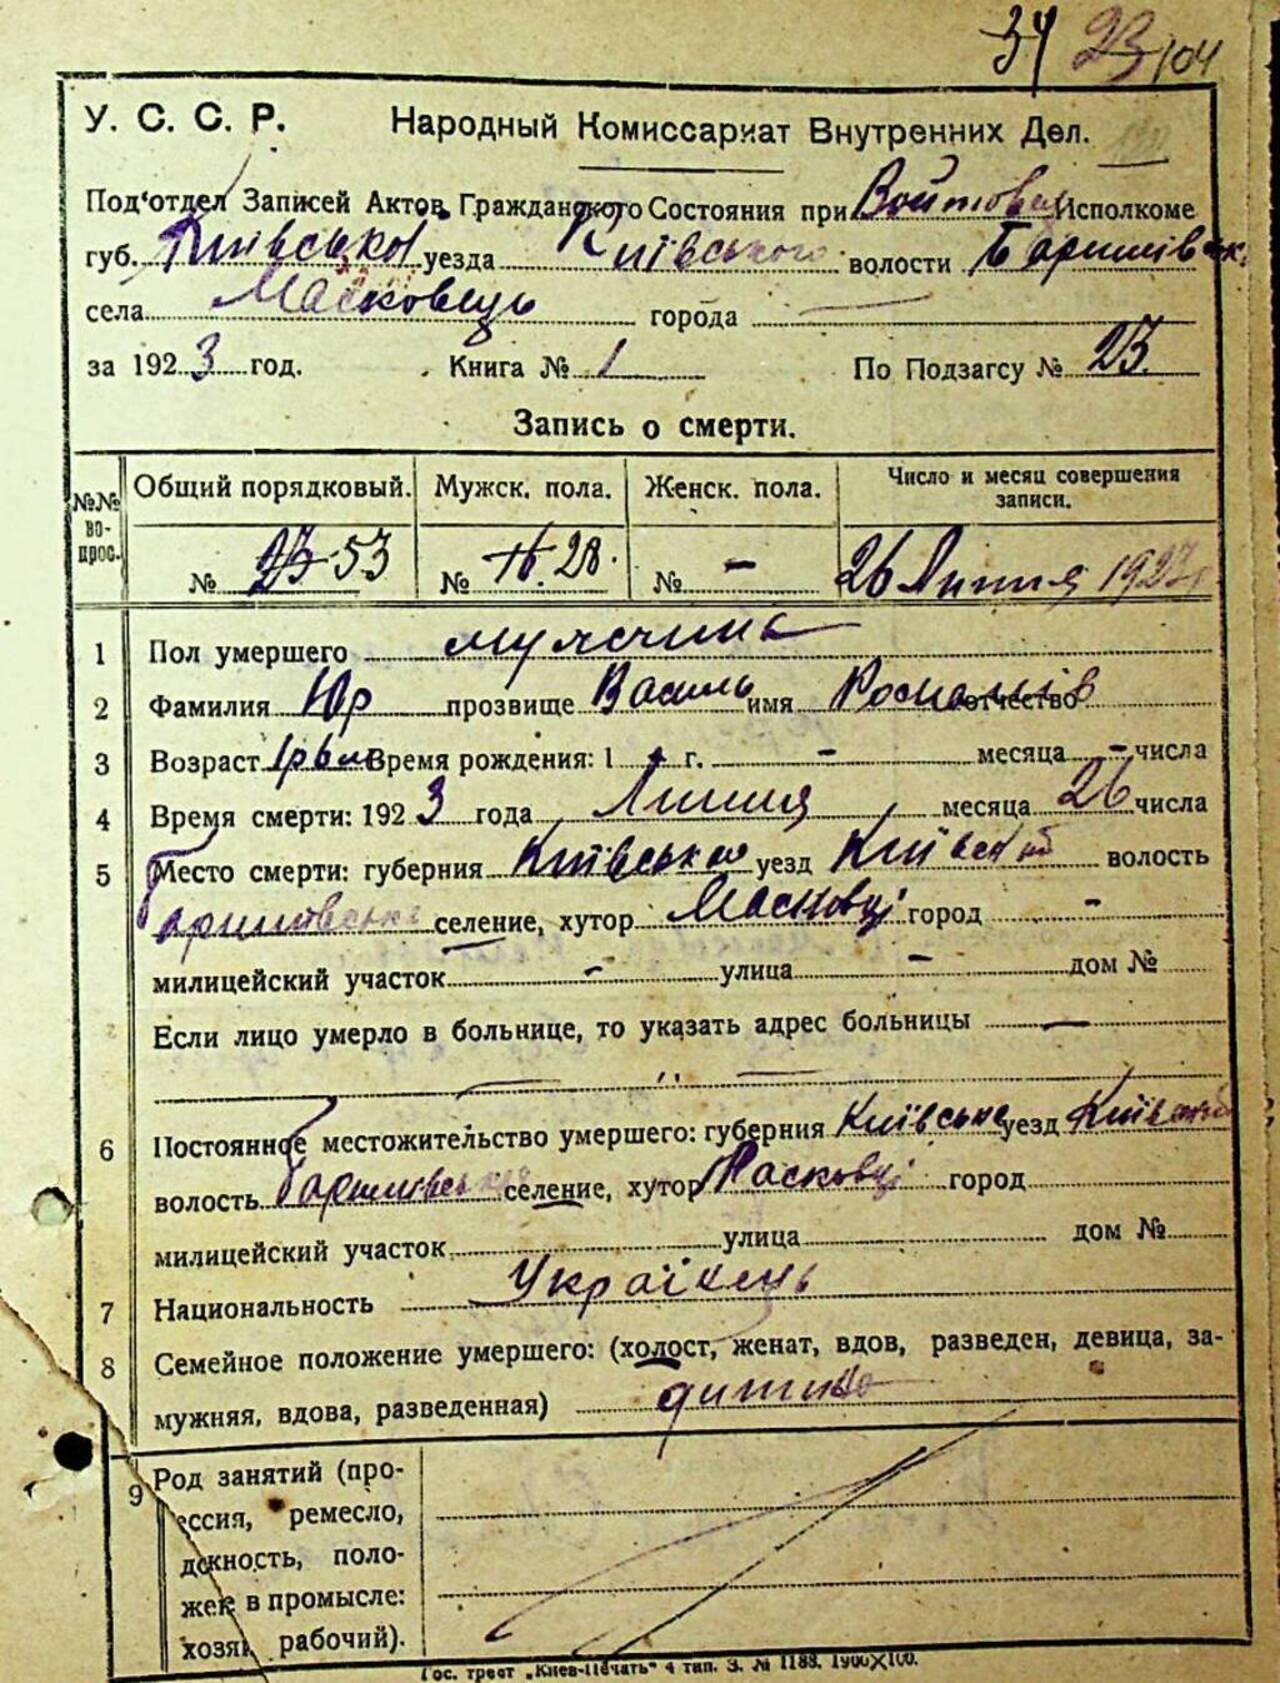 34 23/104
У. С. С. Р. Народный Комиссариат Внутренних Дел.
Под'отдел Записей Актов Гражданского Состояния при Войтовец Исполкоме
губ. Київської уезда Київського волости Баришівськ.
села Масковець города
за 1923 год. Книга № 1 По Подзагсу № 23.
Запись о смерти.
№№ во- прос. Общий порядковый. Мужск. пола. Женск. пола. Число и месяц совершения записи.
№ 23 53 № 16. 28. № - 26 Липня 1923
1 Пол умершего мужчина
2 Фамилия Юр прозвище Василь имя Романів отчество
3 Возраст Время рождения: 1 г. - месяца - числа
4 Время смерти: 1923 года Липня месяца 26 числа
5 Место смерти: губерния Київська уезд Київський волость
Баришівська селение, хутор Масковці город -
милицейский участок - улица - дом №
Если лицо умерло в больнице, то указать адрес больницы —
6 Постоянное местожительство умершего: губерния Київська уезд Київський
волость Баришівська селение, хутор Масковці город
милицейский участок улица дом №
7 Национальность Українець
8 Семейное положение умершего: (холост, женат, вдов, разведен, девица, за-
мужняя, вдова, разведенная) дитина
9 Род занятий (про-
ессия, ремесло,
должность, поло-
жен в промысле:
хозя рабочий).
Гос. трест „Киев-Печать" 4 тип. З. № 1188. 1900X100.